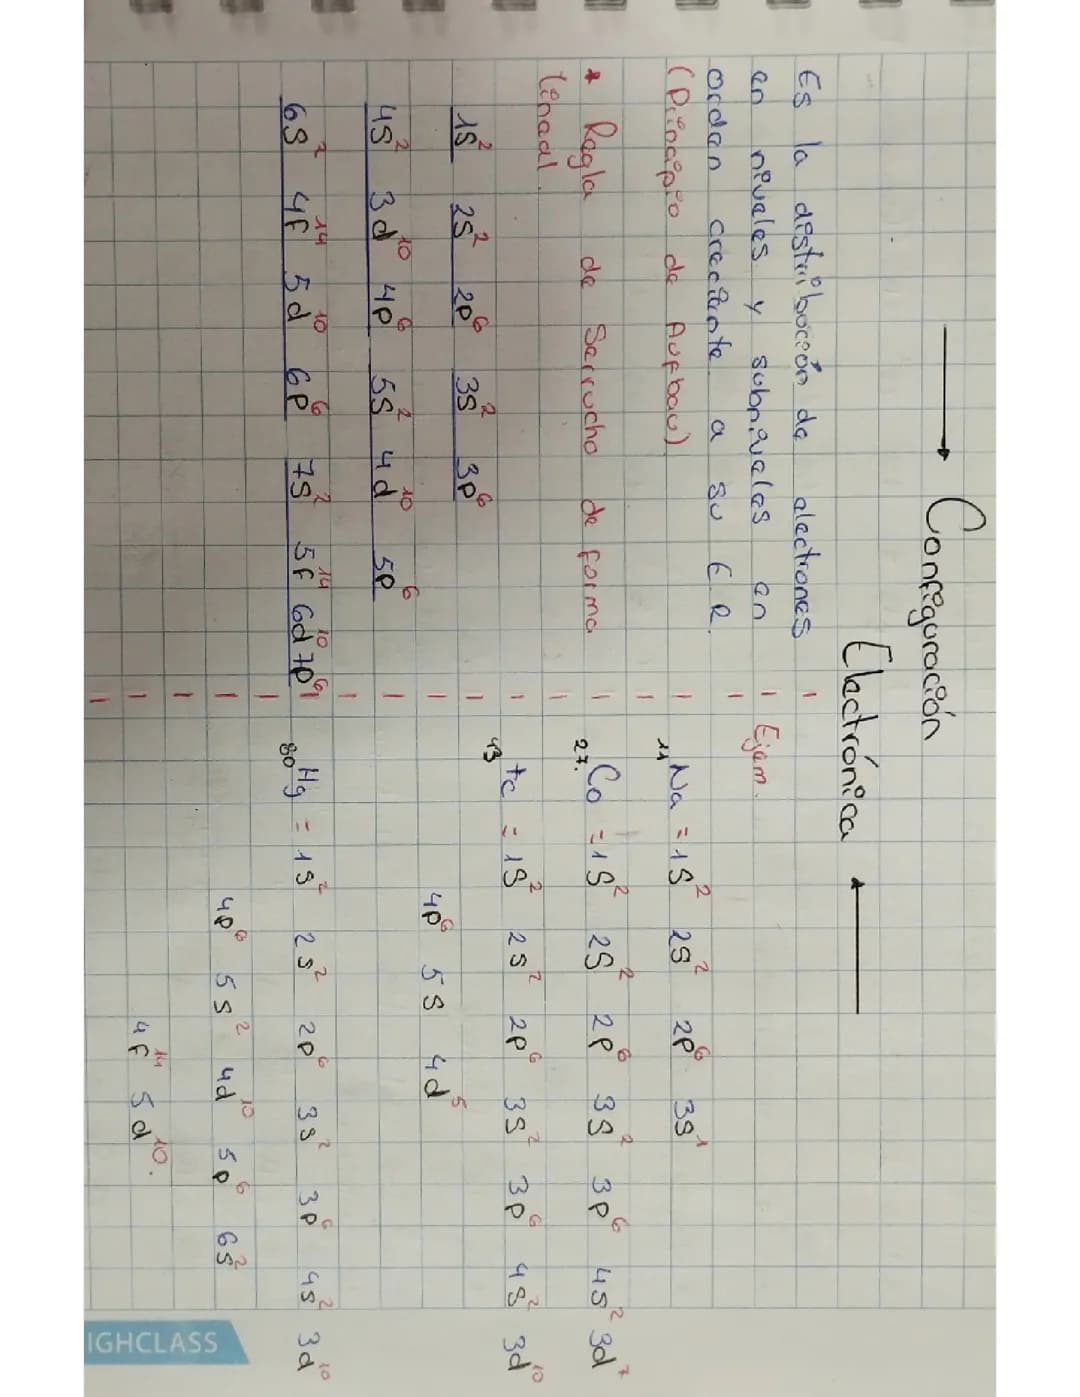 Configuración
Electrónica
Es la distribución de electrones
en niveles y subniveles en
orden creciente a su E.R.
(Principio de Aufbau)
* Regla de Serrucho de forma
lineal.
1s² 2s² 2p⁶ 3s² 3p⁶
4s² 3d¹⁰ 4p⁶ 5s² 4d¹⁰ 5p⁶
6s² 4f¹⁴ 5d¹⁰ 6p⁶ 7s² 5f¹⁴ 6d¹⁰ 7p⁶
Ejem.
₁₁Na = 1s² 2s² 2p⁶ 3s¹
₂₇Co = 1s² 2s² 2p⁶ 3s² 3p⁶ 4s² 3d⁷
₄₃tc = 1s² 2s² 2p⁶ 3s² 3p⁶ 4s² 3d¹⁰
4p⁶ 5s 4d⁵
₈₀Hg = 1s² 2s² 2p⁶ 3s² 3p⁶ 4s² 3d¹⁰
4p⁶ 5s² 4d¹⁰ 5p⁶ 6s²
4f¹⁴ 5d¹⁰.
IGHCLASS